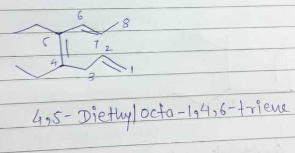 6
8
5
7
2
4
3
1
4,5-Diethylocta-1,4,6-triene